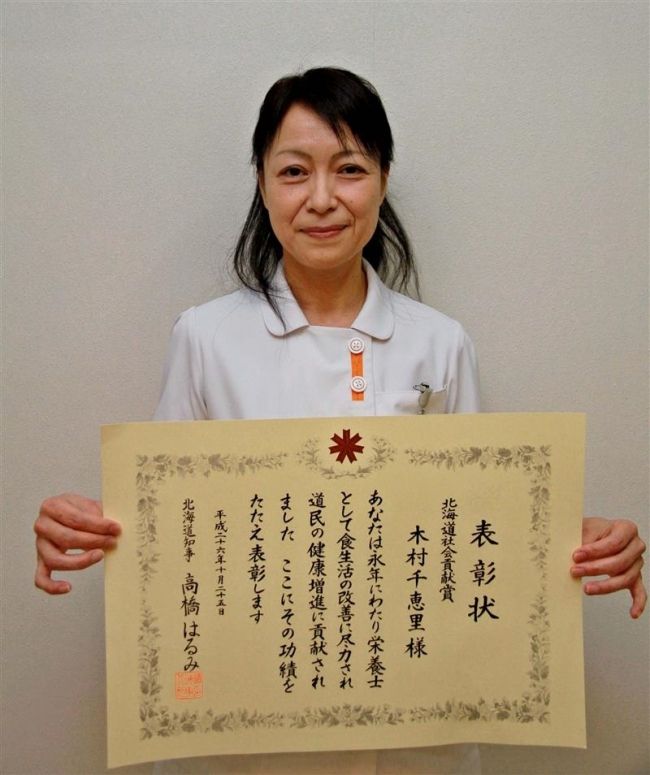 表彰状
北海道社会貢献賞
木村千恵里様
あなたは永年にわたり栄養士
として食生活の改善に尽力され
道民の健康増進に貢献され
ました ここにその功績を
たたえ表彰します
平成二十六年十月二十五日
北海道知事 高橋はるみ